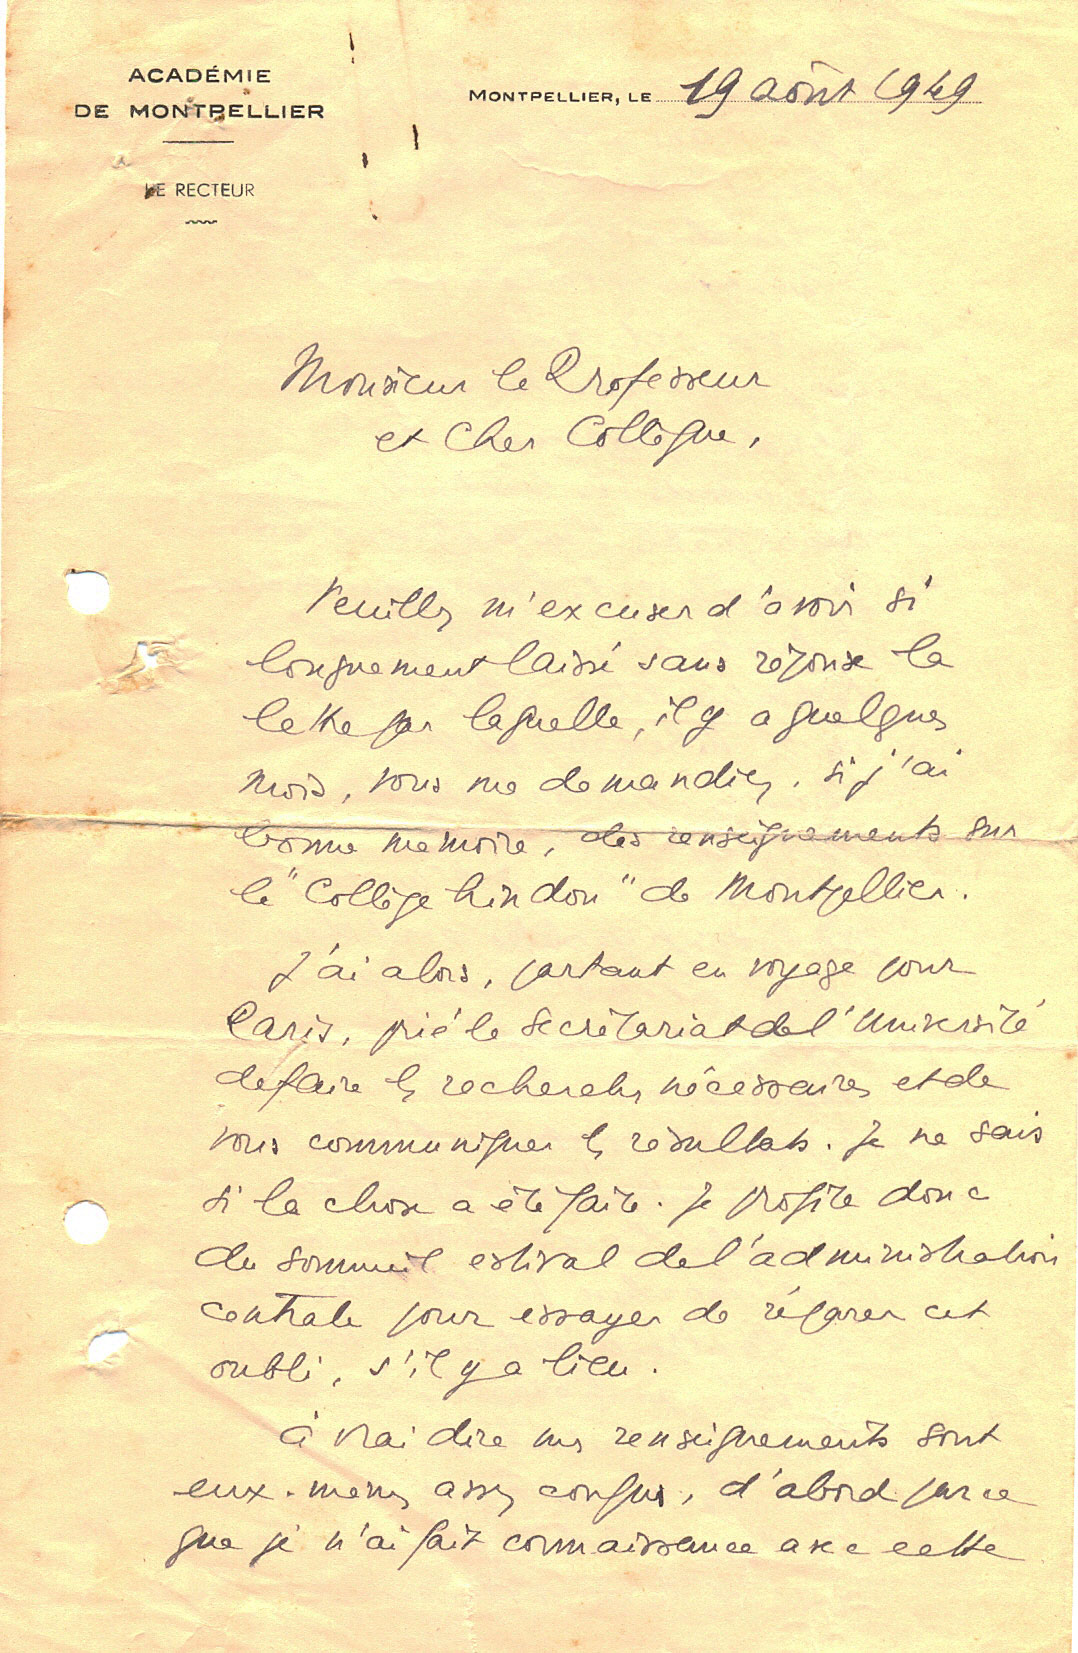 ACADÉMIE
DE MONTPELLIER
LE RECTEUR
MONTPELLIER, LE 19 août 1949
Monsieur le Professeur
et cher Collègue,
Veuillez m'excuser d'avoir si
longuement laissé sans réponse la
lettre par laquelle, il y a quelques
mois, vous me demandiez, si j'ai
bonne mémoire, des renseignements sur
le "Collège hindou" de Montpellier.
J'ai alors, partant en voyage pour
Paris, prié le Secrétariat de l'Université
de faire les recherches nécessaires et de
vous communiquer les résultats. Je ne sais
si la chose a été faite. Je profite donc
du sommeil estival de l'administration
centrale pour essayer de réparer cet
oubli, s'il y a lieu.
à vrai dire mes renseignements sont
eux-mêmes assez confus, d'abord parce
que je n'ai fait connaissance avec cette